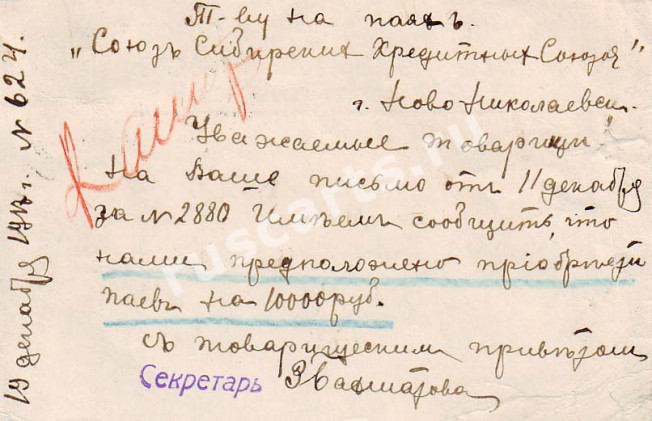 Т-ву на паяхъ.
„Союзъ Сибирских Кредитных Союзов"
г. Ново Николаевск.
Уважаемые товарищи!
На Ваше письмо отъ 11 декабря
за № 2880 Имѣемъ сообщить, что
нами предположено пріобрѣсти
паевъ на 10000 руб.
съ товарищескимъ привѣтом
Секретарь
19 декабря 1917 г. № 624.
ruscarts.ru